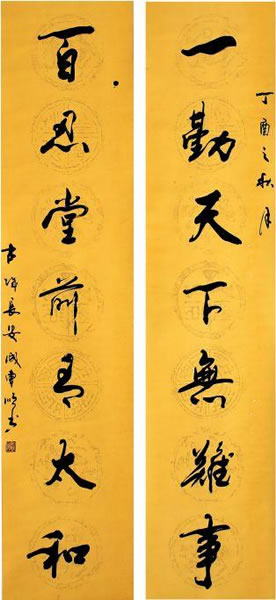 丁酉之秋月
一勤天下無難事
百忍堂前有太和
古都長安成東明書